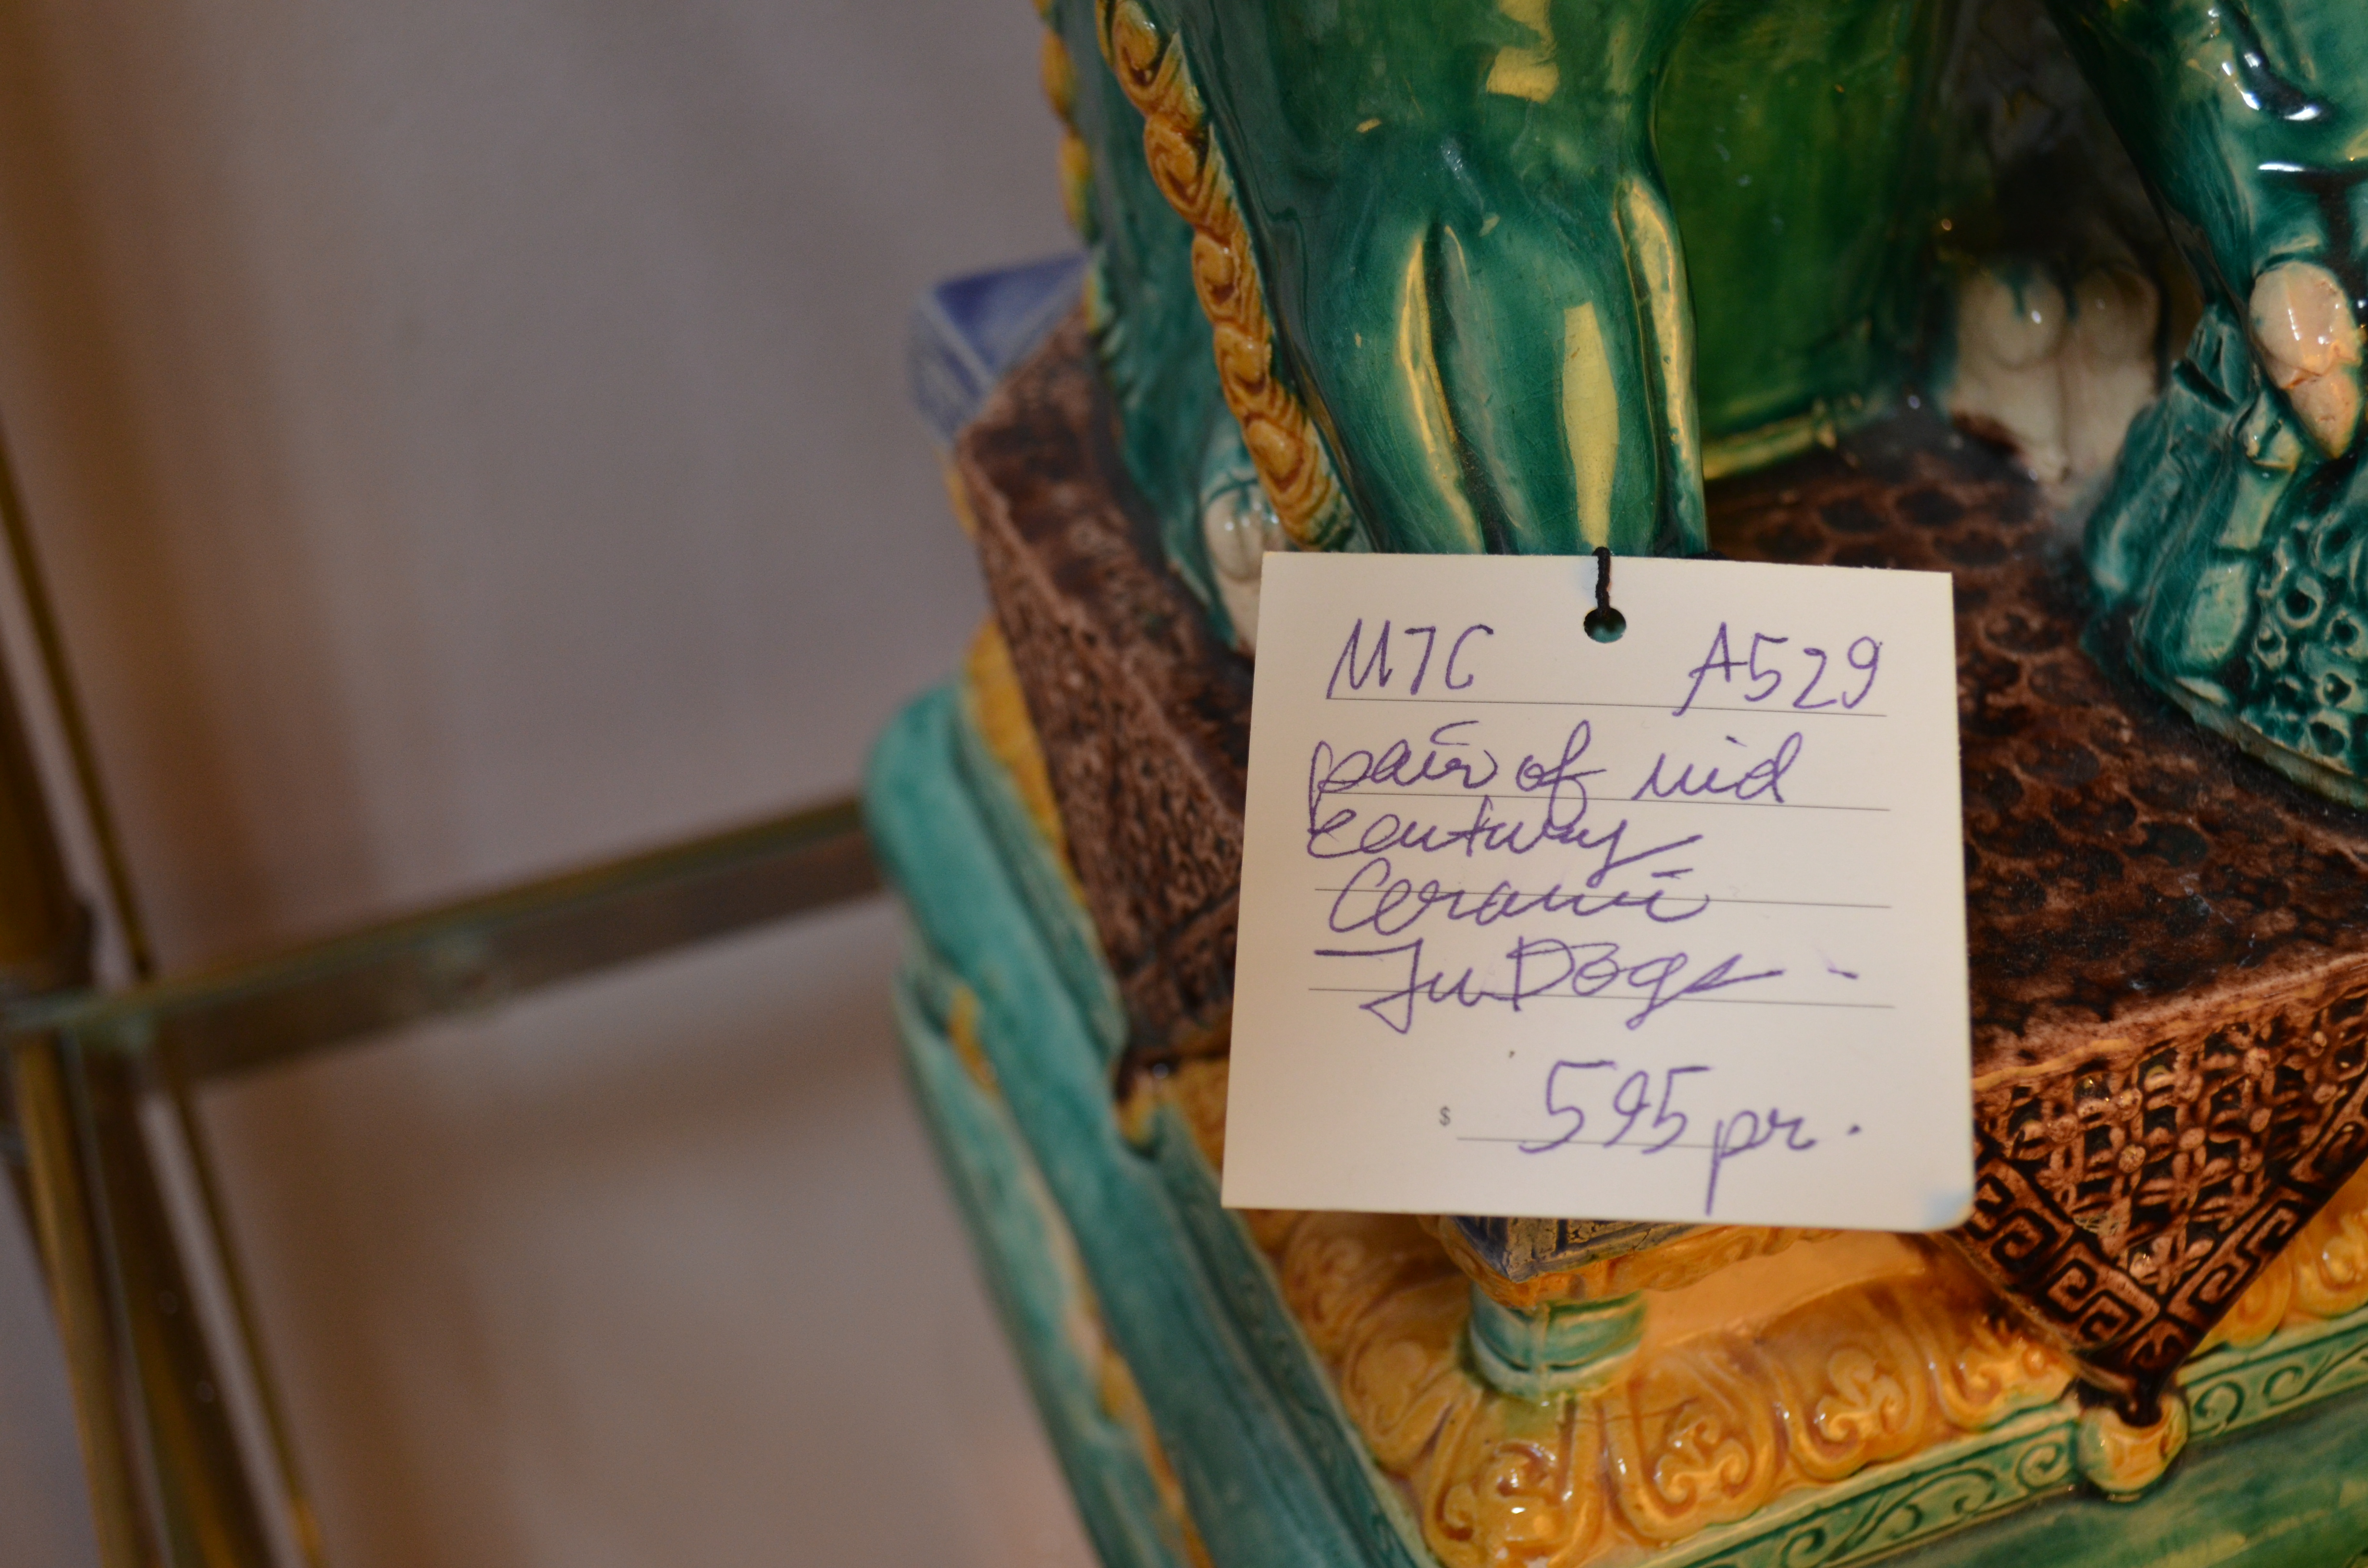 M7C A529
pair of mid
century
Ceramic
Fu Dogs -
$ 595 pr.